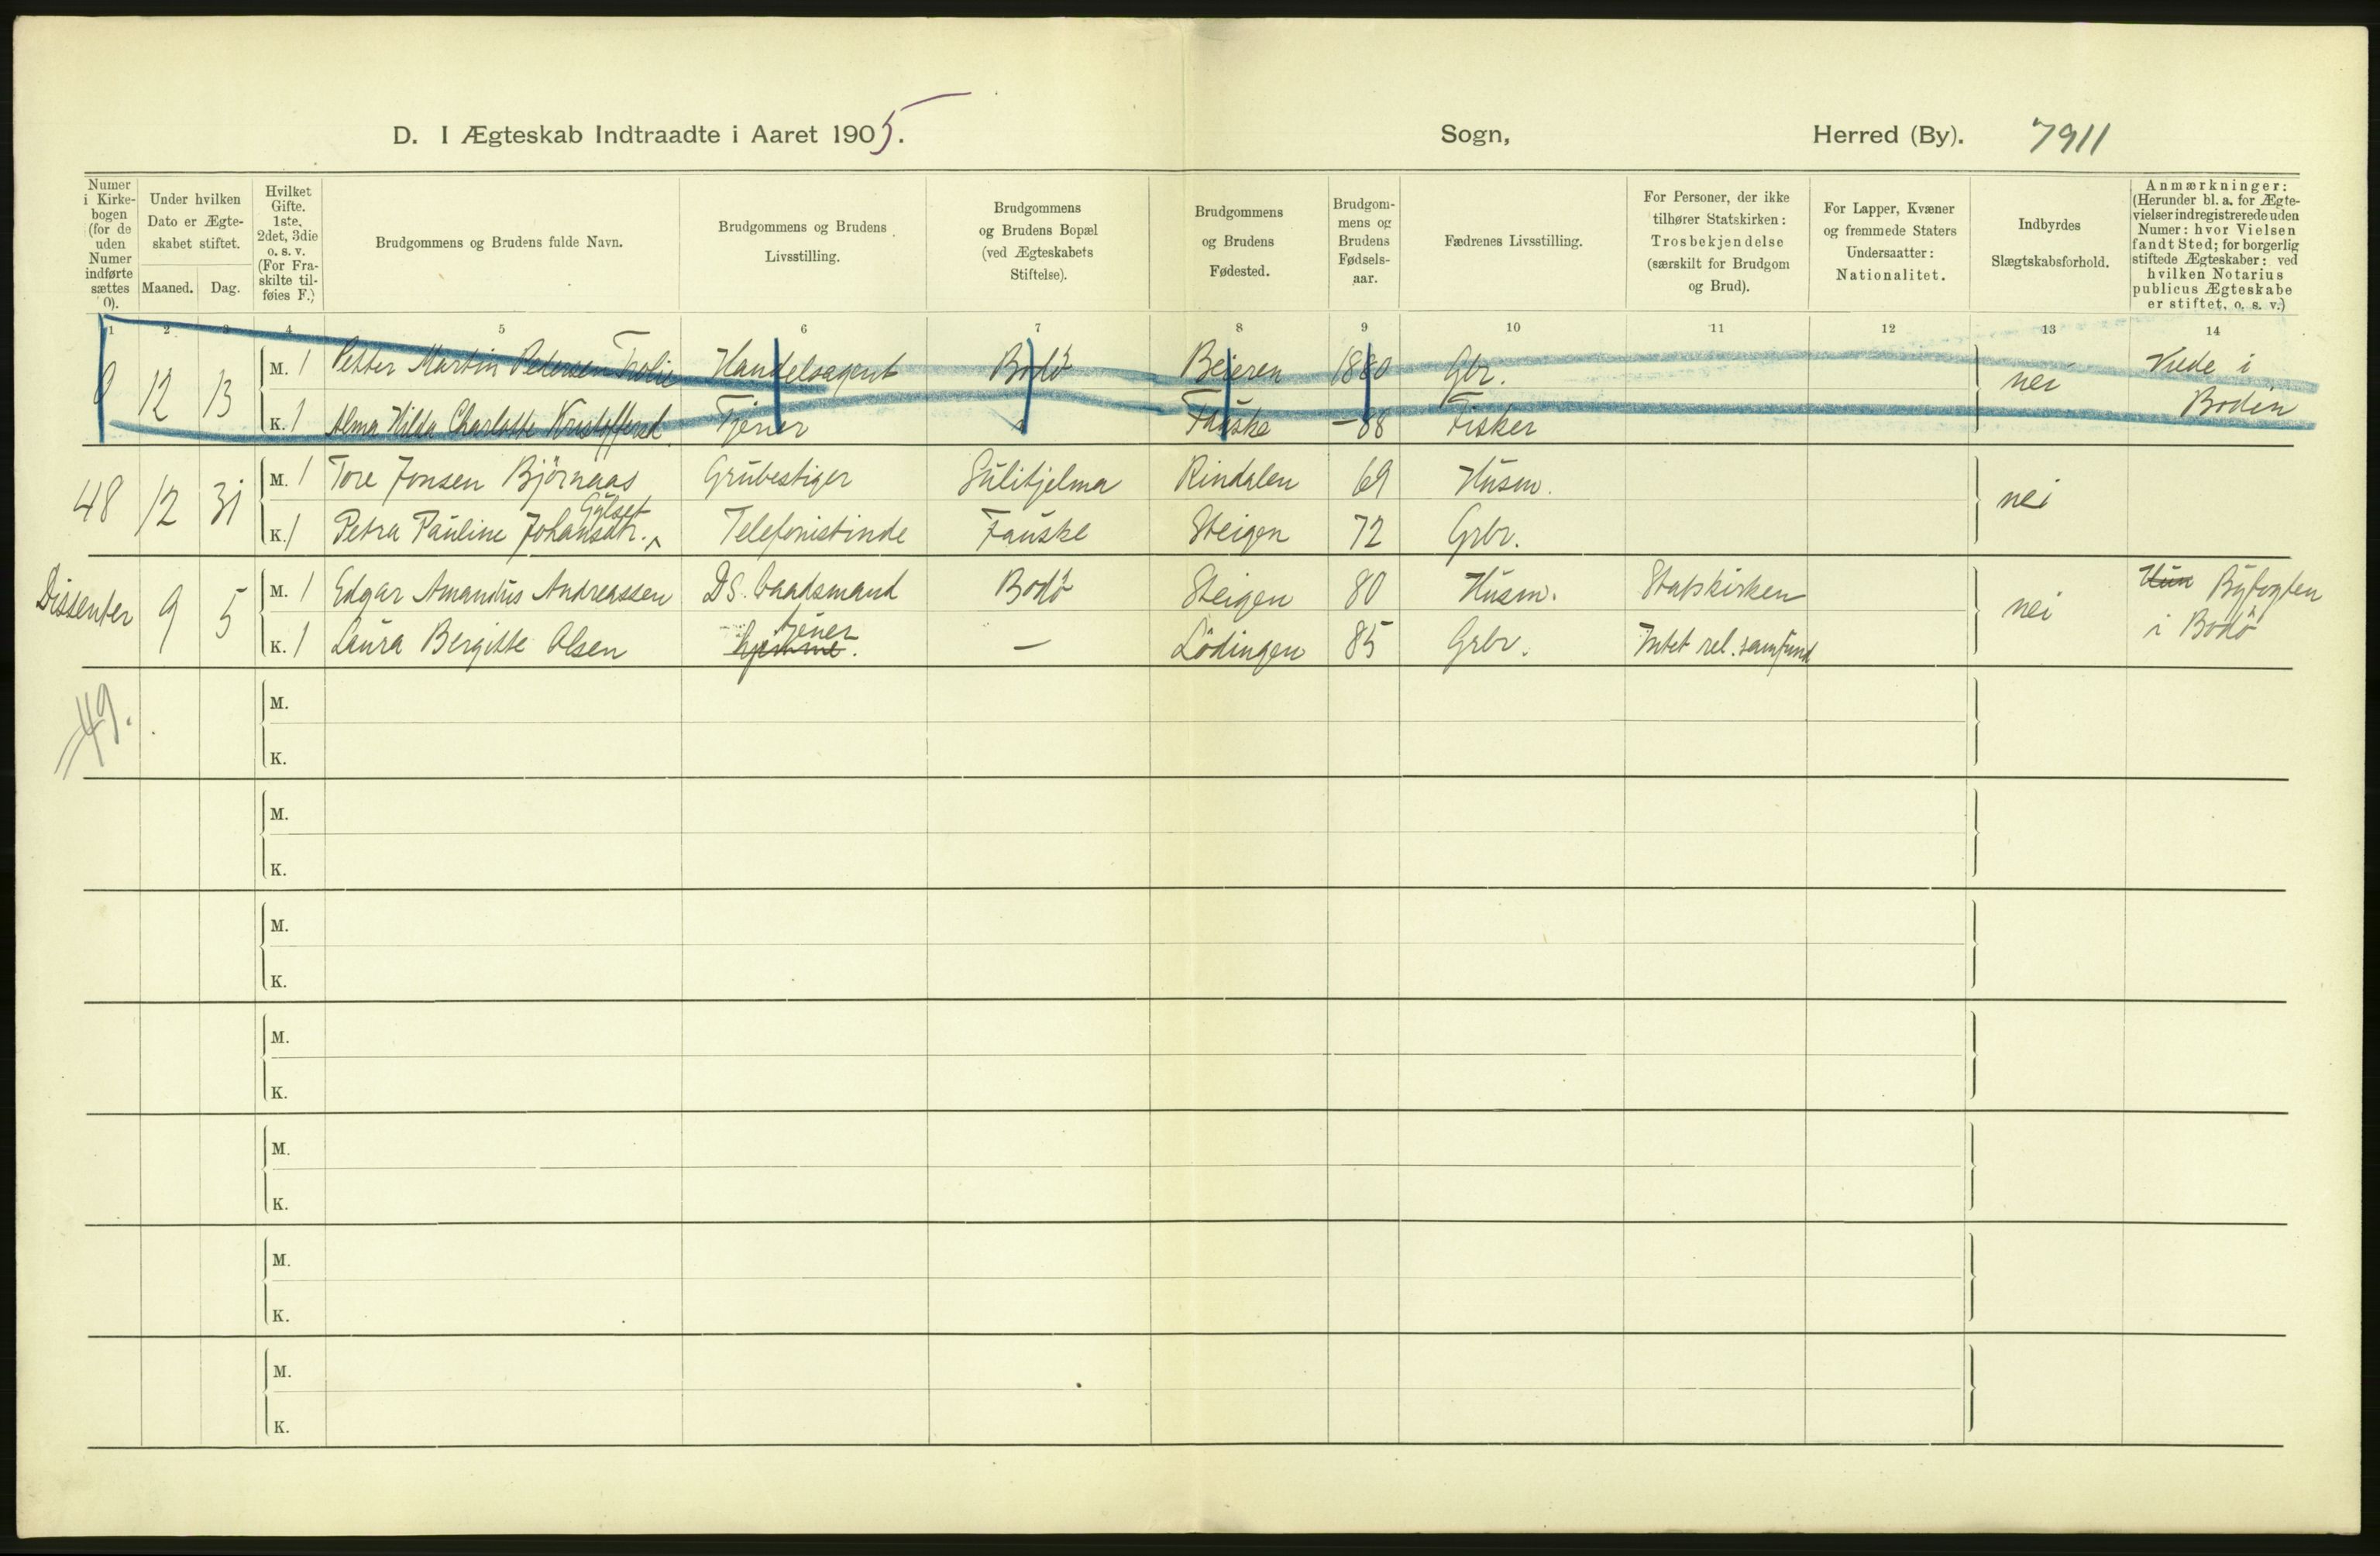 D. I Ægteskab Indtraadte i Aaret 1905. Sogn, Herred (By). 7911
Numer i Kirkebogen (for de uden Numer indførte sættes 0).
Under hvilken Dato er Ægteskabet stiftet.
Maaned. Dag.
Hvilket Gifte. 1ste, 2det, 3die o. s. v. (For Fraskilte tilføies F.)
Brudgommens og Brudens fulde Navn.
Brudgommens og Brudens Livsstilling.
Brudgommens og Brudens Bopæl (ved Ægteskabets Stiftelse).
Brudgommens og Brudens Fødested.
Brudgommens og Brudens Fødselsaar.
Fædrenes Livsstilling.
For Personer, der ikke tilhører Statskirken: Trosbekjendelse (særskilt for Brudgom og Brud).
For Lapper, Kvæner og fremmede Staters Undersaatter: Nationalitet.
Indbyrdes Slægtskabsforhold.
Anmærkninger: (Herunder bl. a. for Ægtevielser indregistrerede uden Numer: hvor Vielsen fandt Sted; for borgerlig stiftede Ægteskaber: ved hvilken Notarius publicus Ægteskabe er stiftet, o. s. v.)
1 2 3 4 5 6 7 8 9 10 11 12 13 14
0 12 13 M. 1 Petter Martin Pedersen Handelsagent Bodö Beieren 1880 Gbr. nei Viede i Bodin
K. 1 Alma Hilda Charlotte Kristoffersd. Tjener Fauske -88 Fisker
48 12 31 M. 1 Tore Jonsen Björnaas Grubestiger Sulitjelma Rindalen 69 Husm. nei
Gylset
K. 1 Petra Pauline Johansdtr. Telefonistinde Fauske Steigen 72 Grbr.
Dissenter 9 5 M. 1 Edgar Amandus Andreassen DS. baadsmand Bodö Steigen 80 Husm. Statskirken nei Hun Byfogten i Bodö
tjener
K. 1 Laura Bergitte Olsen hjemme. — Lödingen 85 Grbr. Intet rel. samfund
49.
M.
K.
M.
K.
M.
K.
M.
K.
M.
K.
M.
K.
M.
K.